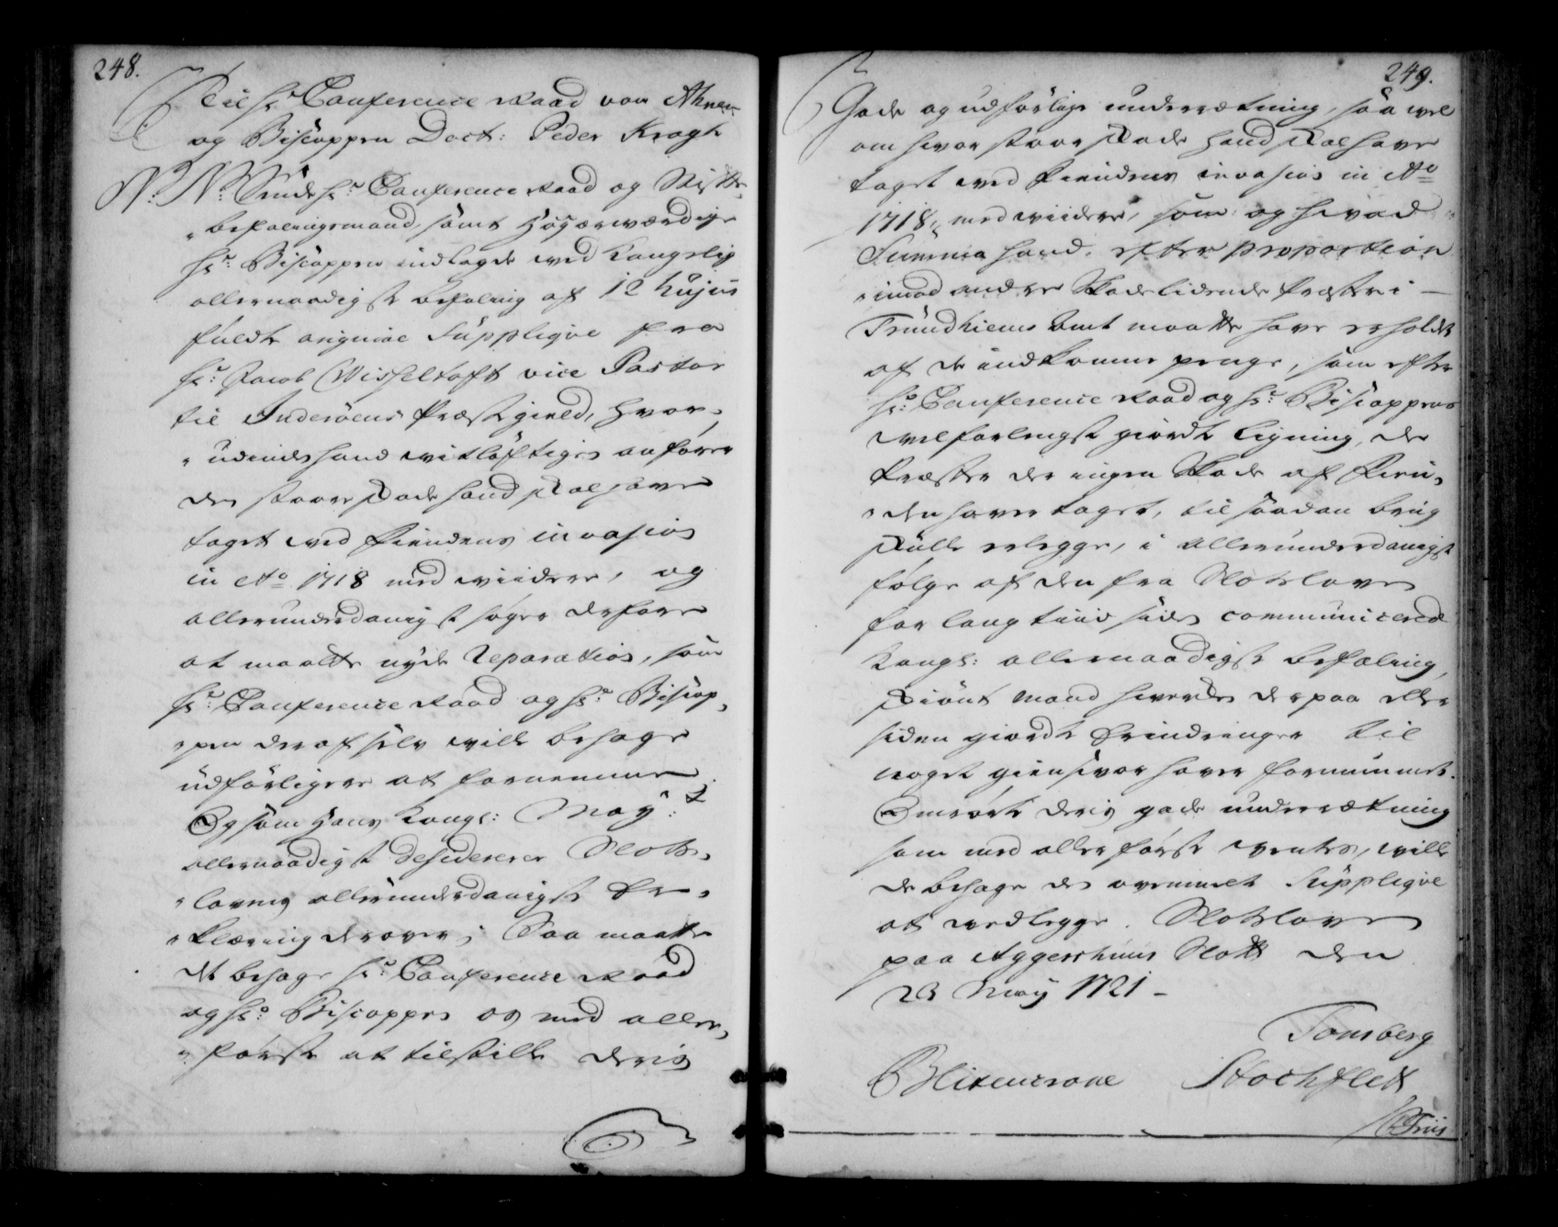 248.
Til Hr. Conference Raad von Ahnen
og Biscoppen Doct: Peder Krogh
N: N: Sende Hr. Conference Raad og Stifts
befalingsmand samt Höyærwærdige
Hr. Biscoppen indlagde ved Kongelig
allernaadigste befaling af 12 hujus
fuldte original Supplique fra
Hr. Jacob Wisseltoft vice Pastor
til Inderöens Præstegield, hvor,
udinde hand witløftigen anförer
den stoore skade hand skal have
taget ved fiendens invasion
in Ao 1718 med wiidere, og
allerunderdanigst söger derfore
at maatte nyde Reparation, som
Hr. Conference Raad og Hr. Biscop,
pen deraf selv wille behage
udförligere at fornemme.
Og som Hans Kongl: May: t
allernaadigst desiderer Slots,
lovens allerunderdanigste Er,
klæring derover; Saa maatte
det behage Hr. Conference Raad
og Hr. Biscoppen os med aller,
første at tilstille deris
249.
Gode og udförlige underrætning, saa wel
om hvor stoor skade hand skal have
taget ved fiendens invasion in Ao
1718, med wiidere, som og hvad
Summa hand efter proportion
imod andre Skadelidende Præster i
Trundhiems Amt maatte have erholdt
af de indkomne penge, som efter
Hr. Conference Raad og Hr. Biscoppens
vel forlengst giordte Ligning, de
Præster der ingen Skade af fien,
den haver taget, til saadan brug
skulle erlegge, i allerunderdanigst
følge af den fra Slotsloven
for lang tiid siden communicerede
Kongl: allernaadigste befaling,
skiönt mand hverken derpaa eller
siden giordte Erindringer til
noget giensvar haver fornummet.
Omrörte deris gode underrætning
som med allerförste ventes, wille
de behage den ommelte Supplique
at vedlegge. Slotsloven
paa Aggershuus Slott den
23 May 1721 -
Tonsberg
Blixencrone Stockflett
Friis